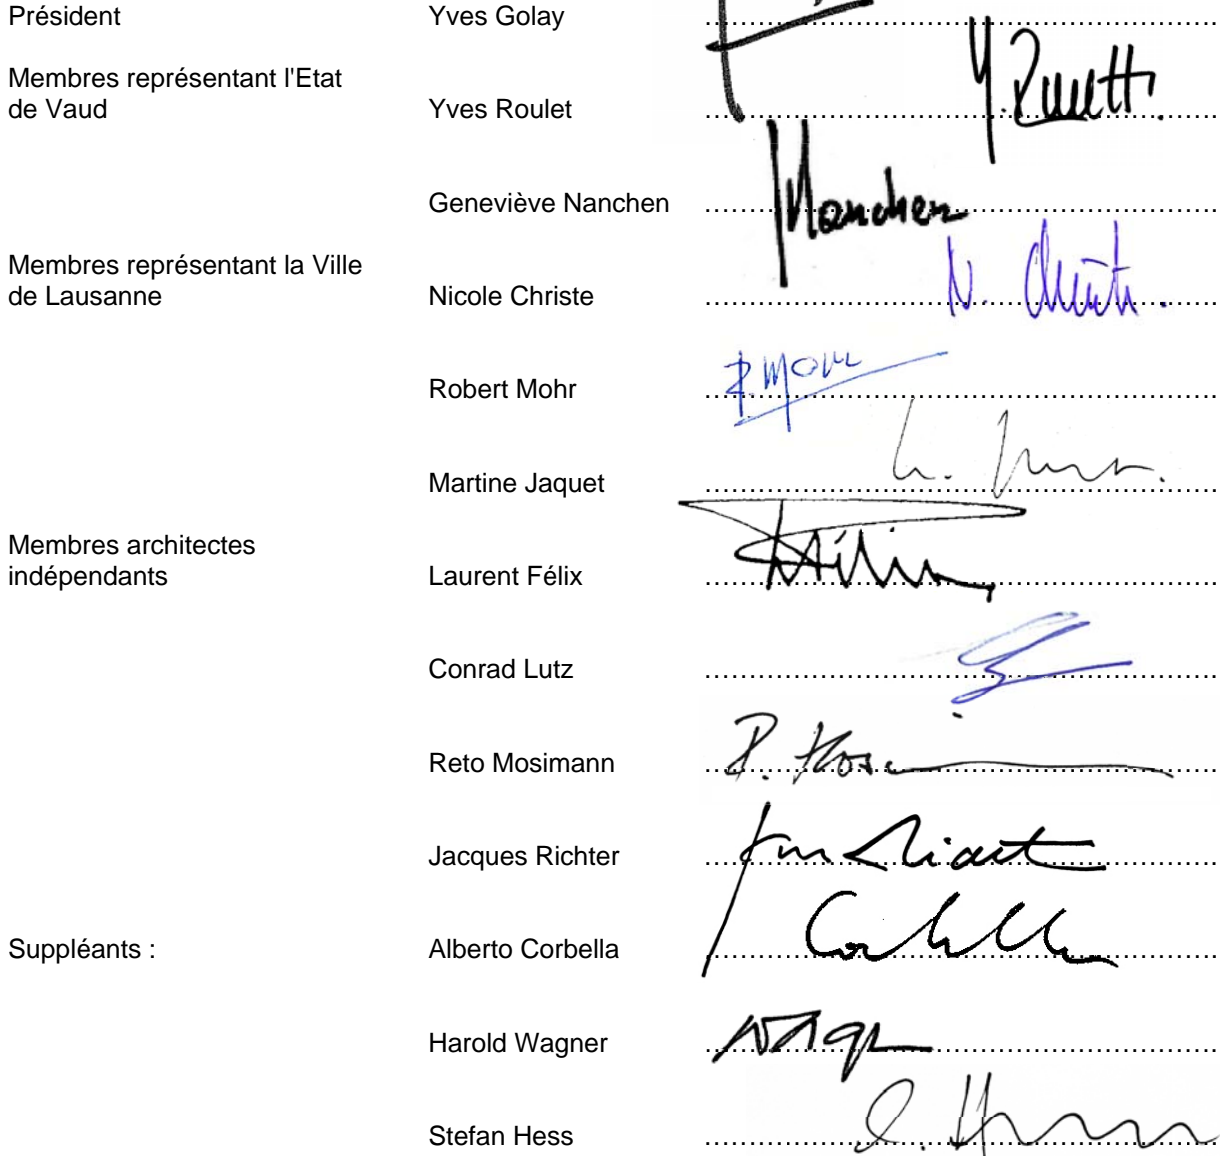 Président Yves Golay ................................................
Membres représentant l'Etat
de Vaud Yves Roulet ................................................
Geneviève Nanchen ................................................
Nanchen
Membres représentant la Ville
de Lausanne Nicole Christe ................................................
Robert Mohr ................................................
Martine Jaquet ................................................
Membres architectes
indépendants Laurent Félix ................................................
Conrad Lutz ................................................
Reto Mosimann ................................................
Jacques Richter ................................................
Suppléants : Alberto Corbella ................................................
Harold Wagner ................................................
Stefan Hess ................................................